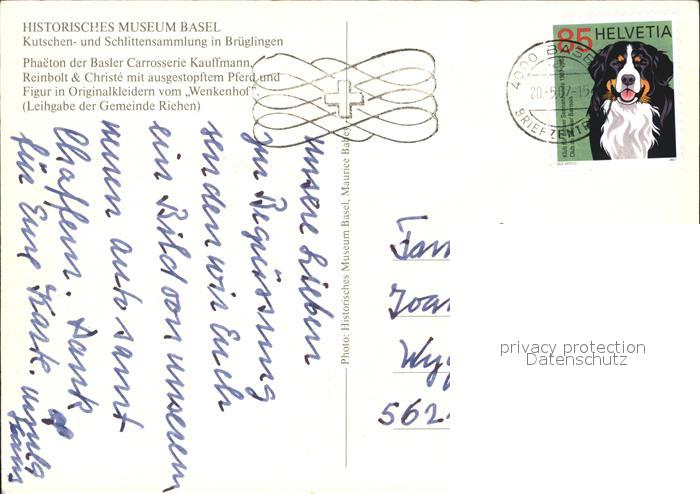 HISTORISCHES MUSEUM BASEL
Kutschen- und Schlittensammlung in Brüglingen
Phaëton der Basler Carrosserie Kauffmann,
Reinbolt & Christé mit ausgestopftem Pferd und
Figur in Originalkleidern vom „Wenkenhof"
(Leihgabe der Gemeinde Riehen)
unsere Lieben
zur Begrüssung
senden wir Euch
ein Bild von unserem
neuen Auto samt
Chauffeur. Dank
für Eure Karte.
Photo: Historisches Museum Basel, Maurice Babey
85 HELVETIA
4000 BASEL
BRIEFZENTR
Fam
Joa
Wy
562
privacy protection
Datenschutz